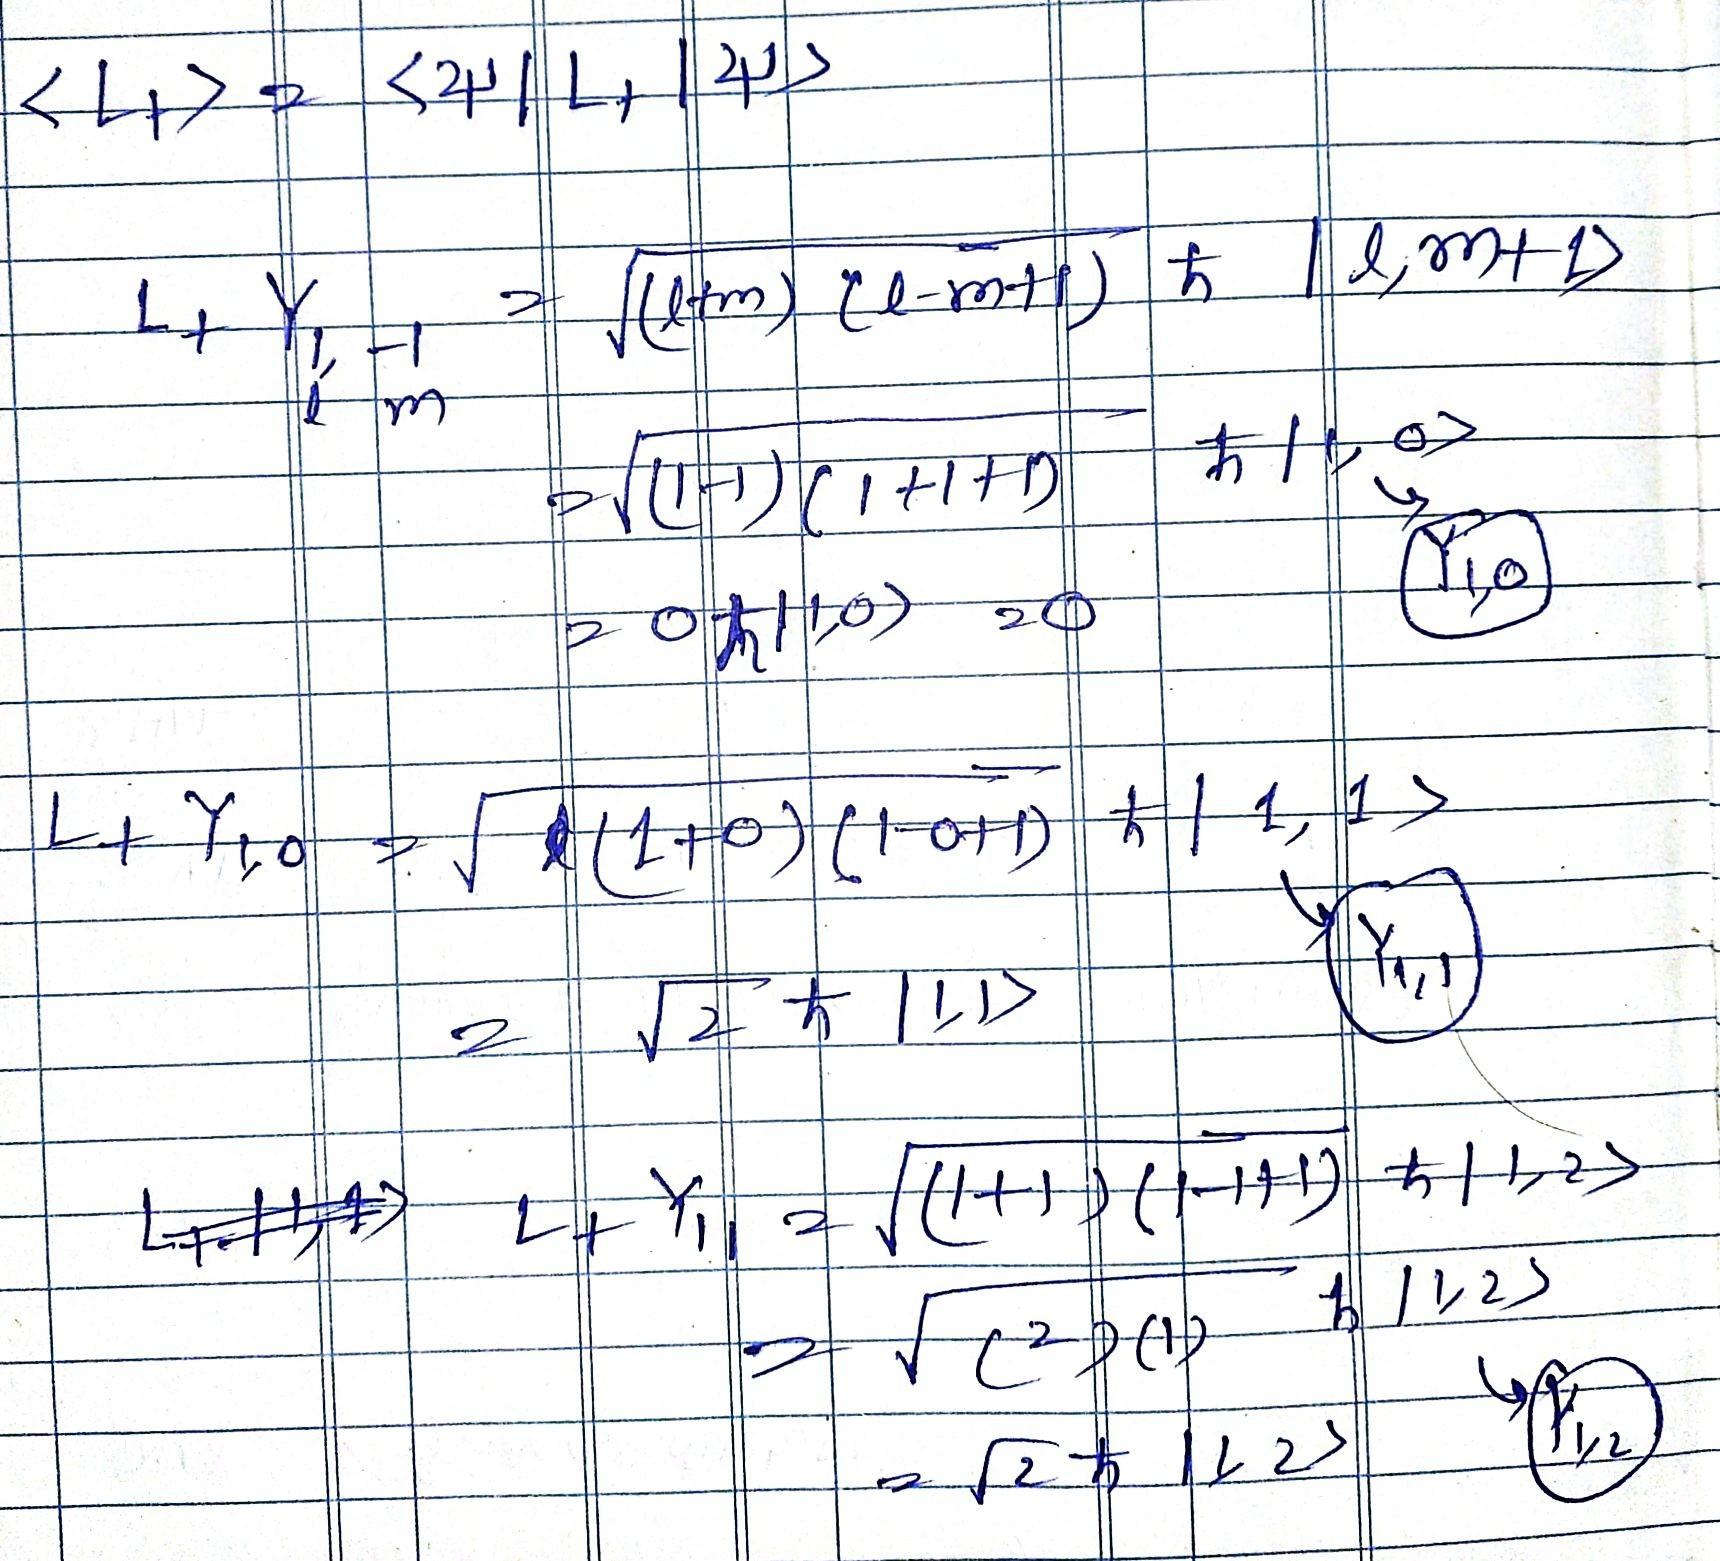 <L+> = <ψ| L+ |ψ>
L+ Y1,-1 = √(l+m) (l-m+1) ħ |l, m+1>
l m
= √(1-1) (1+1+1) ħ |1, 0>
Y1,0
= 0 ħ |1,0> = 0
L+ Y1,0 = √(1+0) (1-0+1) ħ | 1, 1>
Y1,1
= √2 ħ |1,1>
L+ |1,1> L+ Y1,1 = √(1+1) (1-1+1) ħ |1,2>
= √(2) (1) ħ |1,2>
Y1,2
= √2 ħ |1, 2>